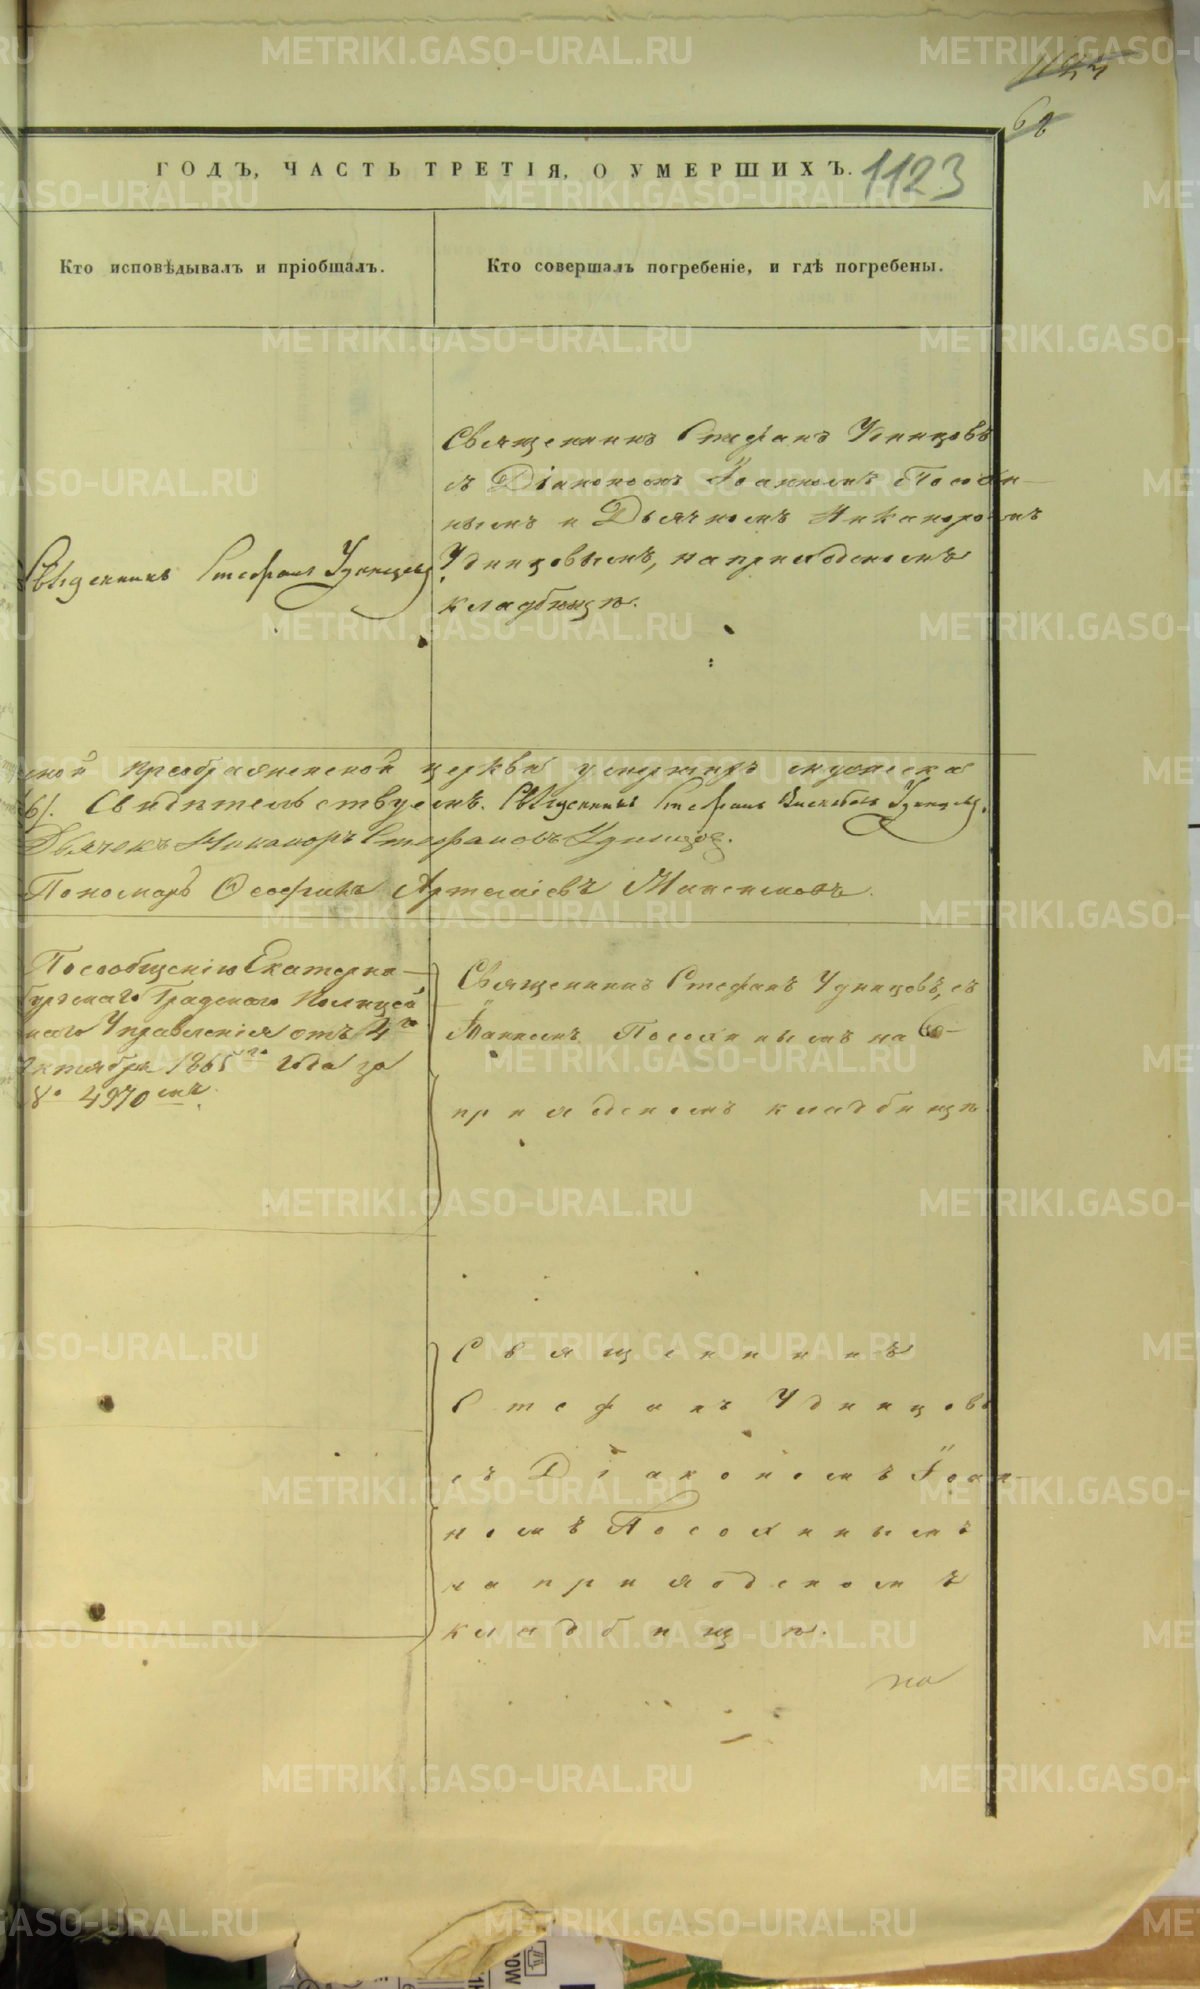 68
ГОДЪ, ЧАСТЬ ТРЕТІЯ, О УМЕРШИХЪ.
1123
Кто исповѣдывалъ и пріобщалъ.
Кто совершалъ погребеніе, и гдѣ погребены.
Священникъ Стефанъ Удинцовъ
Священникъ Стефанъ Удинцовъ
съ Діакономъ Іоанномъ Посохи-
нымъ и Дьячкомъ Никаноромъ
Удинцовымъ, на приходскомъ
кладбищѣ.
ской преображенской церкви умершихъ мужеска
6). Свидѣтельствуемъ. Священникъ Стефанъ Удинцовъ.
Дьячекъ Никаноръ Стефановъ Удинцов.
Пономарь Ѳеофилъ Артеміевъ Максимовъ.
По сообщенію Екатерин-
бургскаго Градскаго Полицей
скаго Управленія отъ 4го
Октября 1865го года за
№ 4970мъ.
Священникъ Стефанъ Удинцовъ, съ
Іоанномъ Посохинымъ на
приходскомъ кладбищѣ.
Священникъ
Стефанъ Удинцовъ
съ Діакономъ Іоан-
номъ Посохинымъ
на приходскомъ
кладбищѣ.
на
METRIKI.GASO-URAL.RU